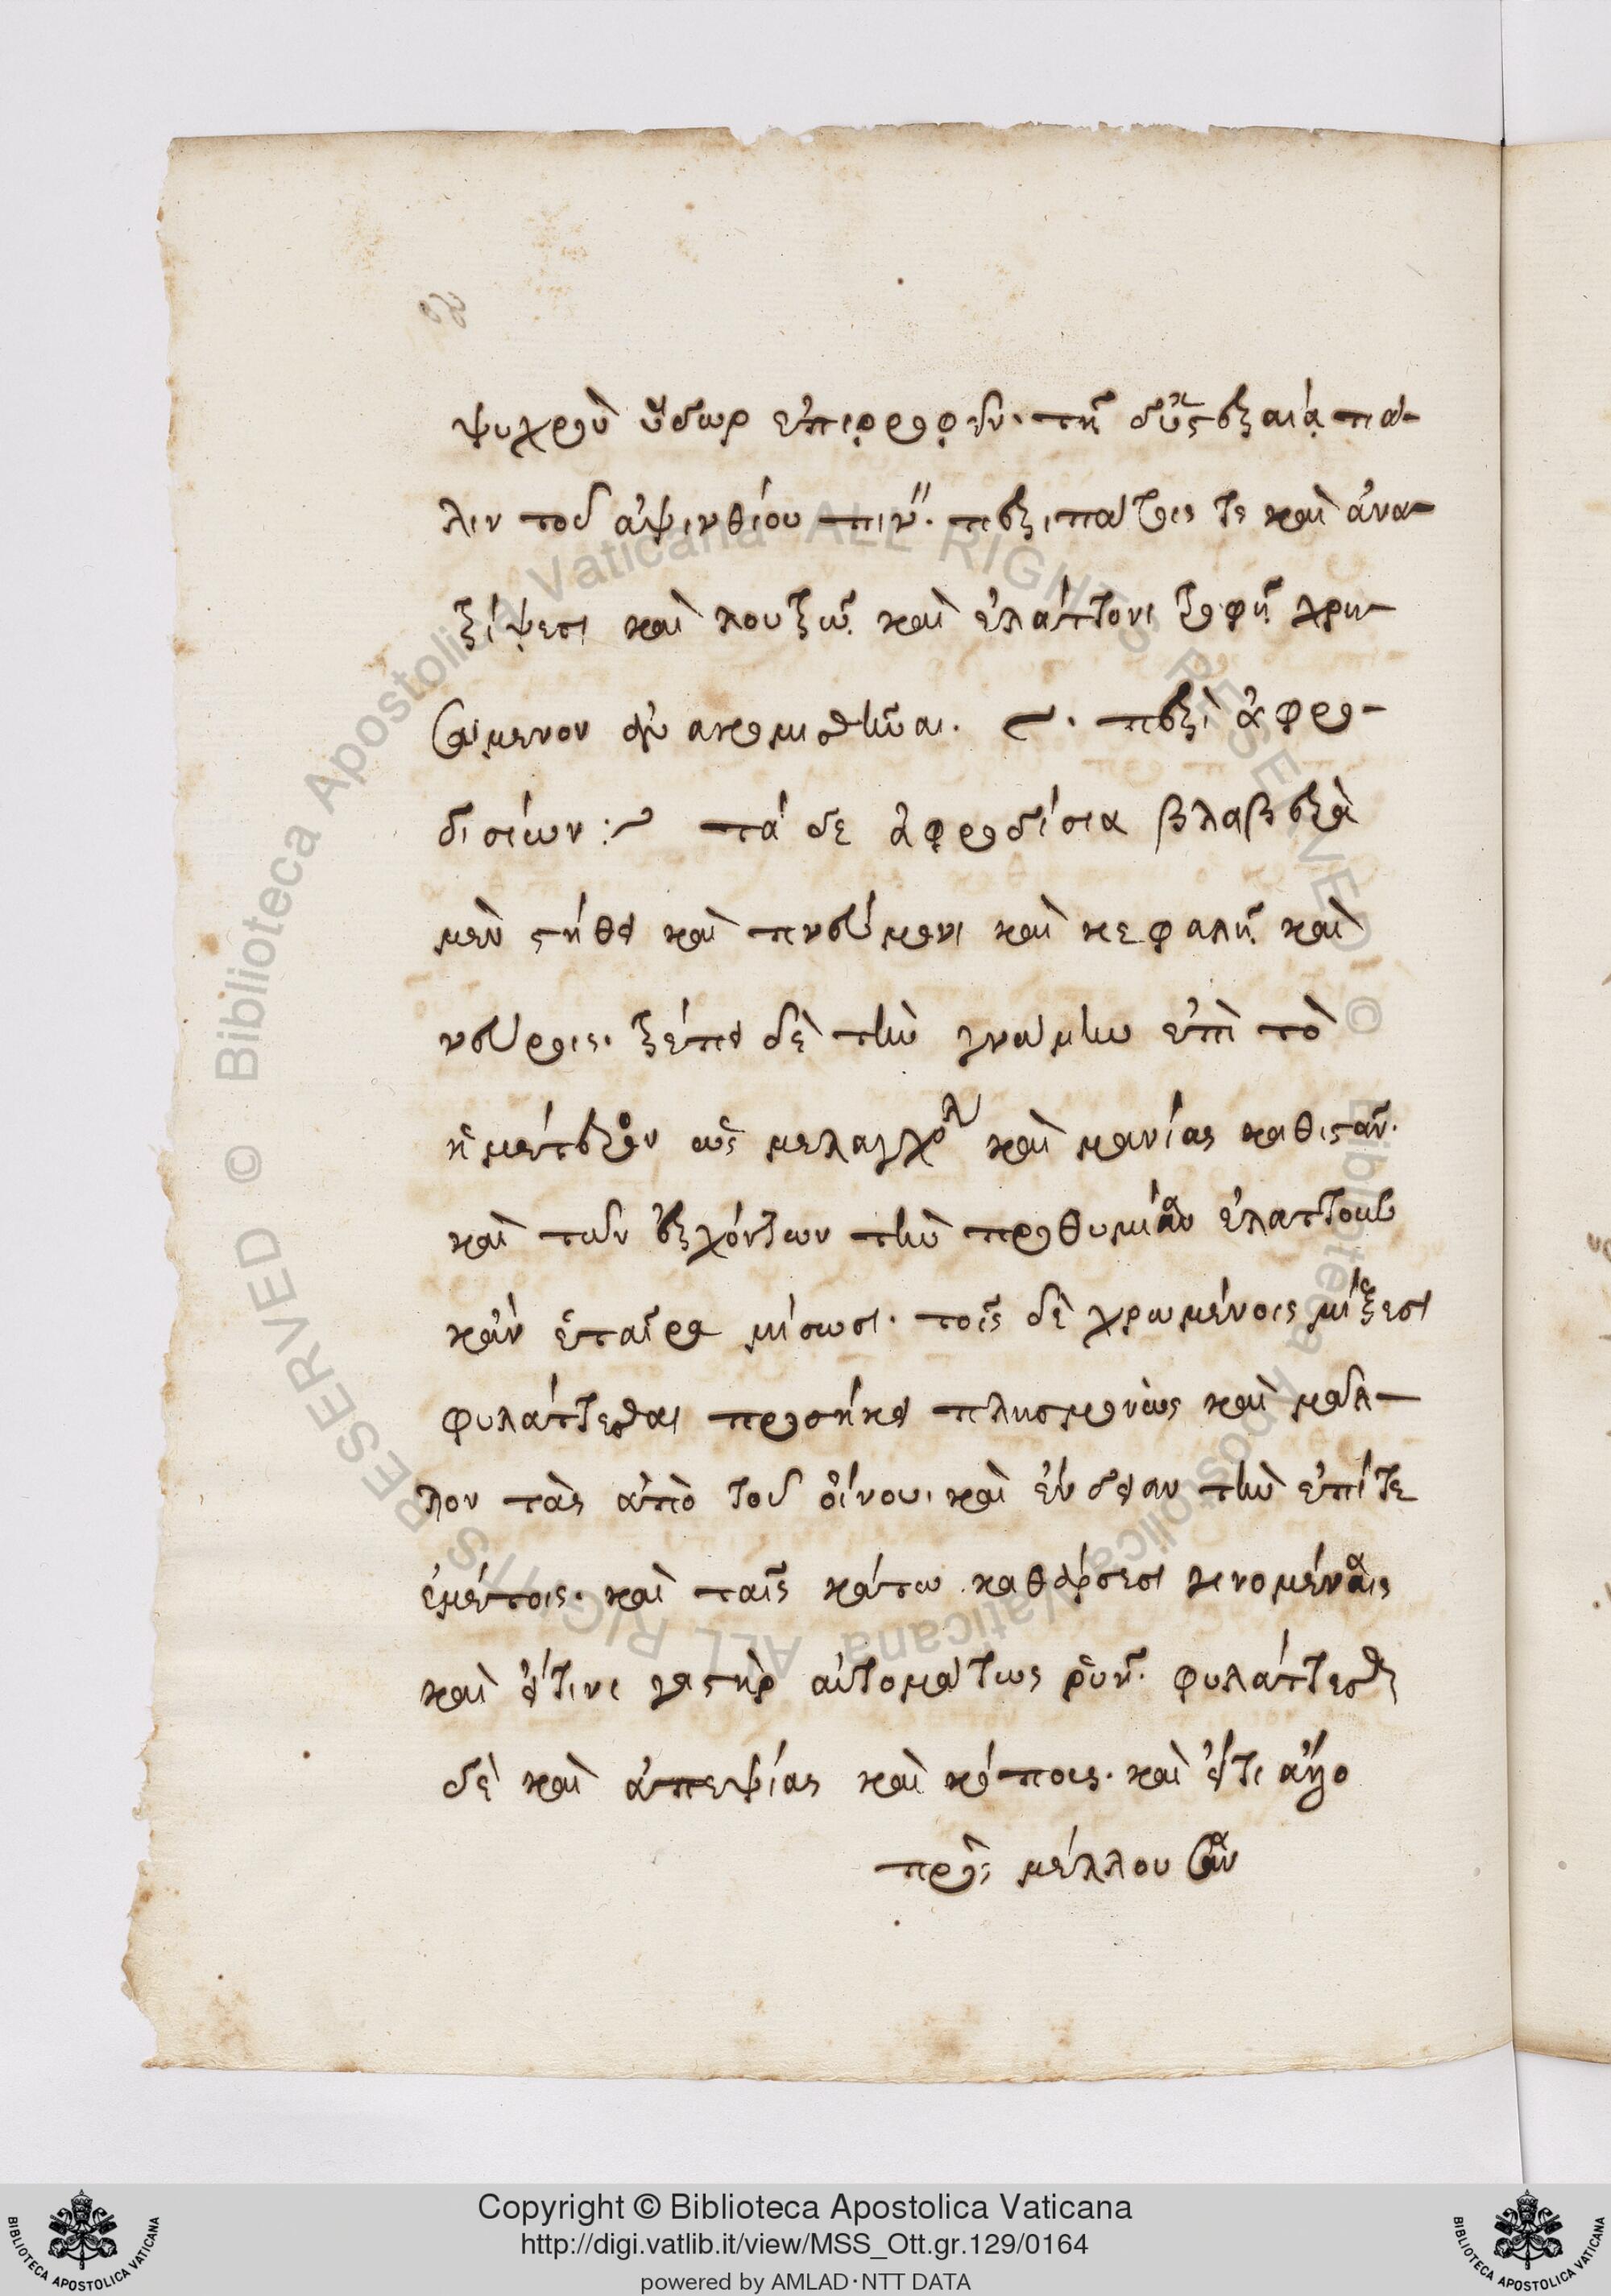 ψυχρὸν ὕδωρ ἐπιρροφεῖν· τῇ δ' ὑστεραίᾳ πά-
λιν τοῦ ἀψινθίου πιν· περιπάτοις τε καὶ ἀνα-
τρίψεσι καὶ λουτρῷ καὶ ἐλάττονι τροφῇ χρη-
σάμενον ἀνακομισθῆναι. περὶ ἀφρο-
δισίων :~ τά δε ἀφροδίσια βλαβερὰ
μὲν στήθει καὶ πνεύμονι καὶ κεφαλῇ καὶ
νεύροις. τρέπει δὲ τὴν γνώμην ἐπὶ τὸ
ἡμέτερον ὡς μελαγχολ καὶ μανίας καθισταν.
καὶ τῶν ἐρχόντων τὴν προθυμίαν ἐλαττοῦν
κἂν ἑταῖρα μίσωσι. τοῖς δὲ χρωμένοις μίξεσι
φυλάττεσθαι προσήκει πλησμονὰς καὶ μᾶλ-
λον τὰς ἀπὸ τοῦ οἴνου. καὶ ἔνδειαν τὴν ἐπί τε
ἐμέτοις. καὶ ταῖς κάτω καθάρσεσι γινομέναις
καὶ εἴ τινι γαστὴρ αὐτομάτως ῥυῇ. φυλάττεσθαι
δὲ καὶ ἀπεψίας καὶ κόπους. καὶ εἴ τι ἄλλο
πρὸς μέλλουσαν
Copyright © Biblioteca Apostolica Vaticana
http://digi.vatlib.it/view/MSS_Ott.gr.129/0164
powered by AMLAD·NTT DATA
BIBLIOTECA APOSTOLICA VATICANA
BIBLIOTECA APOSTOLICA VATICANA
© Biblioteca Apostolica Vaticana ALL RIGHTS RESERVED © Biblioteca Apostolica Vaticana ALL RIGHTS RESERVED